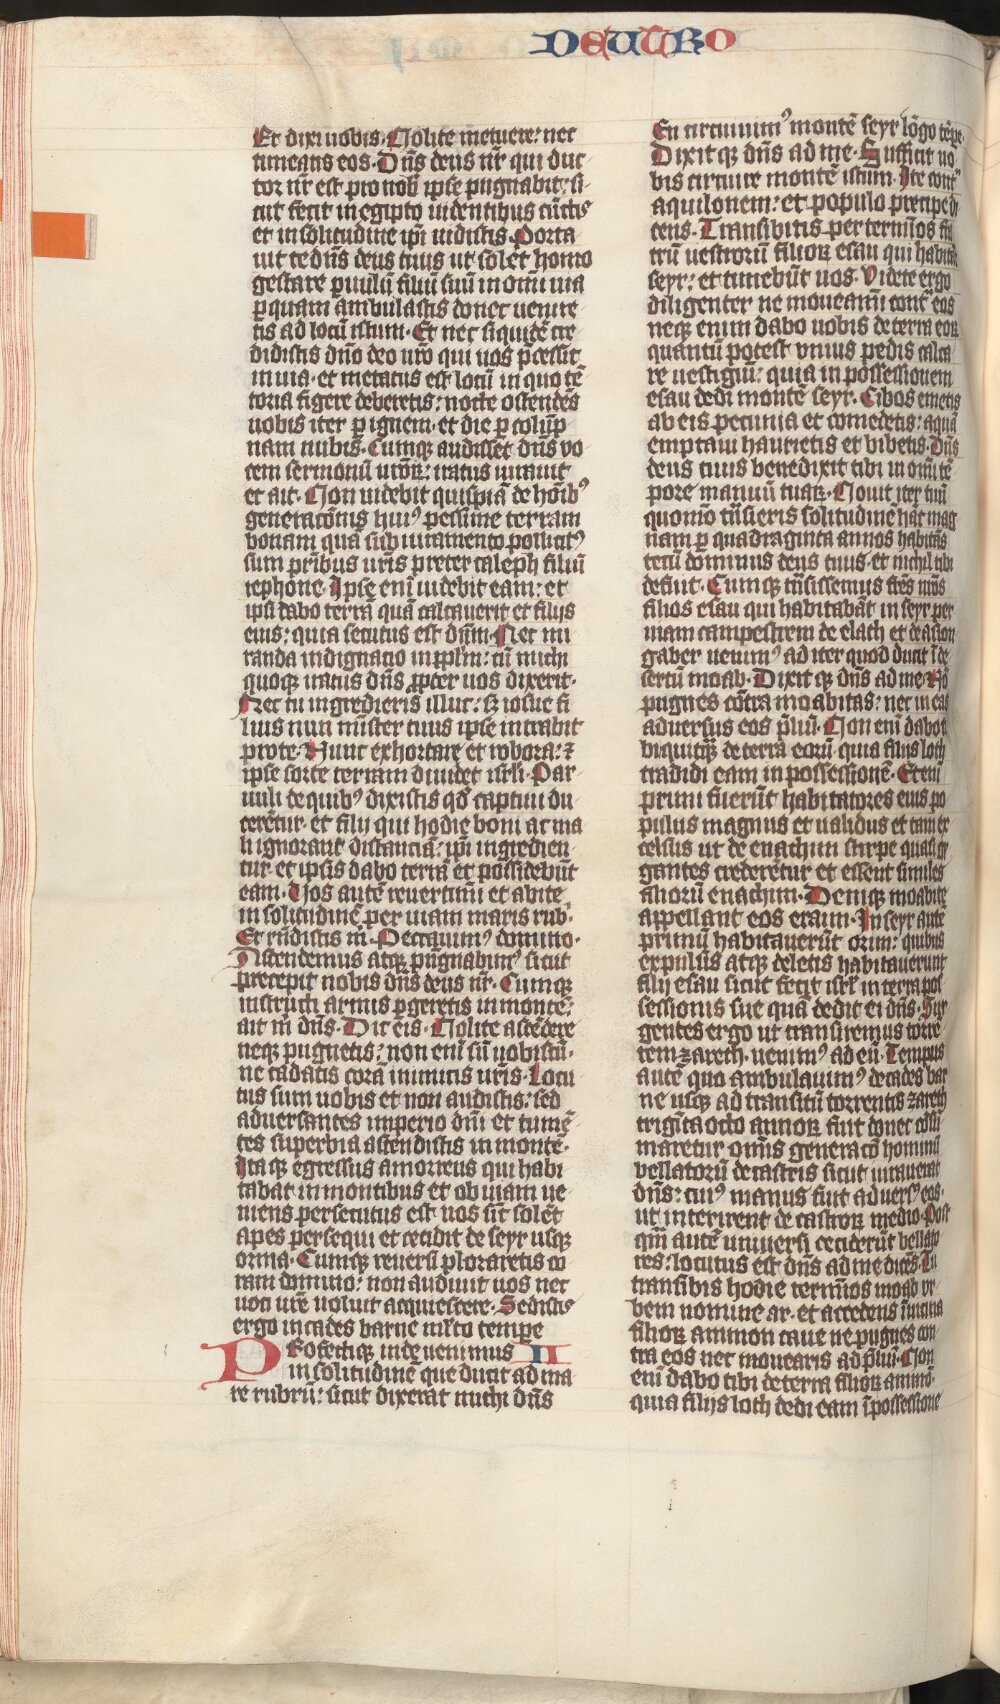 DEUTRO
Et dixi uobis. Nolite metuere: nec
timeatis eos. Dn̄s deus nr̄ qui duc-
tor nr̄ est pro nob̄ ipse pugnabit: si-
cut fecit in egipto uidentibus cūctis
et in solitudine ip̄i uidistis. Porta-
uit te dn̄s deus tuus ut solet homo
gestare puulū filiū suū in omni uia
p quam ambulastis donec venire-
tis ad locū istum. Et nec siquidē cre-
didistis dn̄o deo ur̄o qui uos pcessit
in uia. et metatus est locū in quo tē-
toria figere deberetis: nocte ostendēs
uobis iter p ignem. et die p colūp-
nam nubis. Cumqꝫ audisset dn̄s vo-
cem sermonū ur̄oꝝ: iratus iurauit
et ait. Non uidebit quispiā de hoībꝰ
generacōnis huiꝰ pessime terram
bonam quā sub iuramento pollicitꝰ
sum pr̄ibus ur̄is preter caleph filiū
iephone. Ipse enī uidebit eam: et
ipsi dabo terrā quā calcauerit et filijs
eius: quia secutus est dn̄m. Nec mi-
randa indignacio in ppl̄m: cū michi
quoqꝫ iratus dn̄s ꝓpter uos dixerit.
Nec tu ingredieris illuc: sꝫ iosue fi-
lius nun mīster tuus ipse intrabit
pro te. Hunc exhortare et robora: ⁊
ipse sorte terram diuidet isrl̄i. Par-
uuli de quibꝰ dixistis qd̄ captiui du-
cerētur. et filij qui hodie boni ac ma-
li ignorant distanciā: ip̄i ingredien-
tur et ipsis dabo terrā et possidebūt
eam. Uos autē reuertimī et abite
in solitudinē per uiam maris rub.
Et rn̄distis m̄. Peccauimꝰ domino.
Ascendemus atqꝫ pugnabimꝰ sicut
precepit nobis dn̄s deus nr̄. Cumqꝫ
instructi armis pgeretis in monte:
ait m̄ dn̄s. Dic eis. Nolite ascēdere
neqꝫ pugnetis: non enī sū uobiscū.
ne cadatis corā inimicis ur̄is. Locu-
tus sum uobis et non audistis: sed
aduersantes imperio dn̄i et tumē-
tes superbia ascendistis in montē.
Itaqꝫ egressus amorreus qui habi-
tabat in montibus et obuiam ue-
niens persecutus est uos sic̄ solēt
apes persequi et cecidit de seyr usqꝫ
orma. Cumqꝫ reuersi ploraretis co-
ram domino: non audiuit uos nec
uoci ur̄e uoluit acquiescere. Sedistis
ergo in cades barne ml̄to tempe
Profectiqꝫ inde uenimus II
in solitudinē que ducit ad ma-
re rubrū: sicut dixerat michi dn̄s
Et circuiuimꝰ montē seyr lōgo tēpe
Dixitqꝫ dn̄s ad me. Sufficit uo-
bis circuire montē istum. Ite cont̄
aquilonem: et populo precipe di-
cens. Transibitis per terminos fra-
trū uestrorū filioꝝ esau qui habitāt
seyr: et timebūt uos. Videte ergo
diligenter ne moueamī cont̄ eos
neqꝫ enim dabo uobis de terra eoꝝ
quantū potest vnius pedis calca-
re uestigiū: quia in possessionem
esau dedi montē seyr. Cibos emetis
ab eis pecunia et comedetis: aquā
emptam haurietis et bibetis. Dn̄s
deus tuus benedixit tibi in omī tē-
pore manuū tuaꝝ. Nouit iter tuū
quomō trāsieris solitudinē hāc mag-
nam p quadraginta annos habitās
tecū dominus deus tuus. et nichil tibi
defuit. Cumqꝫ trāsissemus fr̄es nr̄os
filios esau qui habitabāt in seyr per
uiam campestrem de elath et de asion
gaber uenimꝰ ad iter quod ducit ī de-
sertū moab. Dixitqꝫ dn̄s ad me. Nō
pugnes cōtra moabitas: nec in eas
aduersus eos pl̄iū. Non enī dabo t-
bi quitqꝫ de terra eorū. quia filijs loth
tradidi eam in possessionē. Et enī
primi fuerūt habitatores eius po-
pulus magnus et ualidus et tam ex-
celsus ut de enachim stirpe quasi gi-
gantes crederētur et essent similes
filiorū enachim. Deniqꝫ moabite
appellant eos emim. In seyr autē
primū habitauerūt orim: quibus
expulsis atqꝫ deletis habitauerunt
filij esau sicut fecit isrl̄ in terra pos-
sessionis sue quā dedit ei dn̄s. Sur-
gentes ergo ut transiremus torre-
tem zareth. uenimꝰ ad eū. Tempus
autē quo ambulauimꝰ de cades bar-
ne usqꝫ ad transitū torrentis zareth
triginta octo annoꝝ fuit donec cōsu-
maretur omīs generacō hominū
bellatorū de castris sicut iurauerat
dn̄s: cuiꝰ manus fuit aduersꝰ eos.
ut interirent de castroꝝ medio. Post-
qm̄ autē uniuersi ceciderūt bellato-
res: locutus est dn̄s ad me dicēs. Tu
transibis hodie terminos moab vr-
bem nomine ar. et accedens ī uicina
filioꝝ ammon caue ne pugnes con-
tra eos nec mouearis ad pl̄iū. Non
enī dabo tibi de terra filioꝝ ammō.
quia filijs loth dedi eam ī possessione